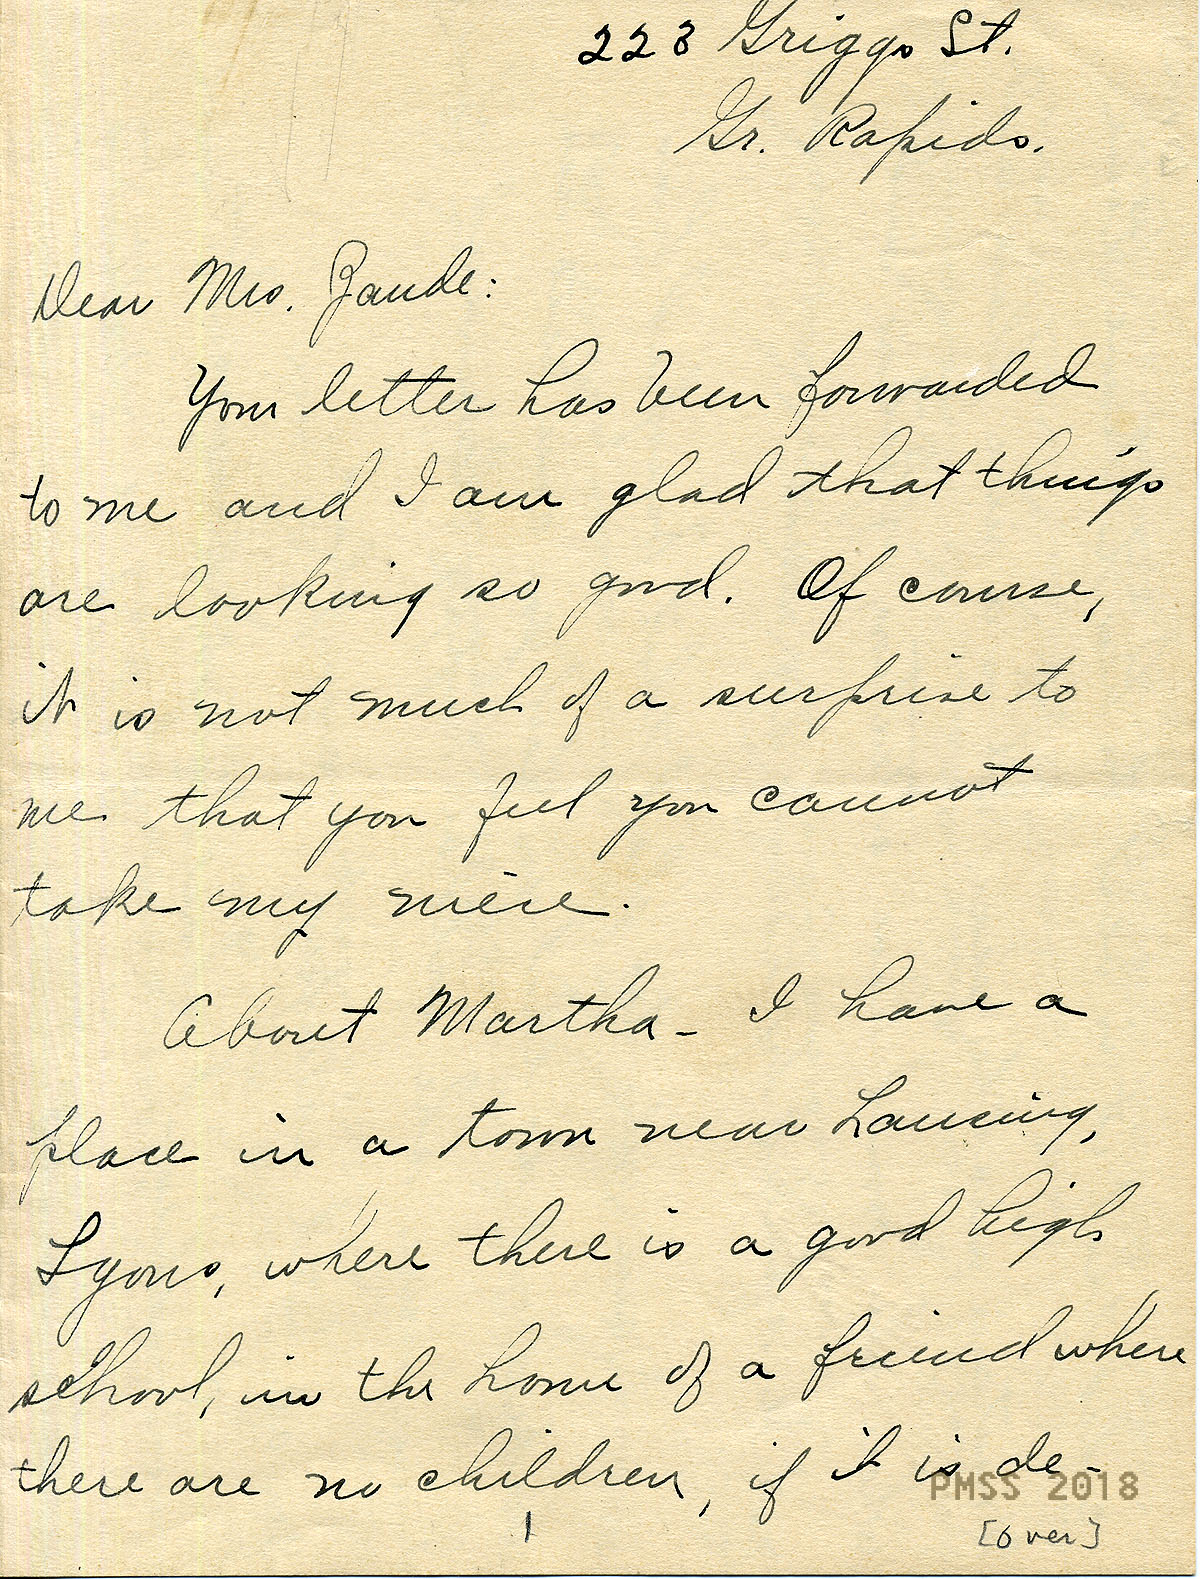 223 Griggs St.
Gr. Rapids.
Dear Mrs. Zande:
Your letter has been forwarded
to me and I am glad that things
are looking so good. Of course,
it is not much of a surprise to
me that you feel you cannot
take my niece.
About Martha - I have a
place in a town near Lansing,
Lyons, where there is a good high
school, in the home of a friend where
there are no children, if it is de-
PMSS 2018
1
[over]